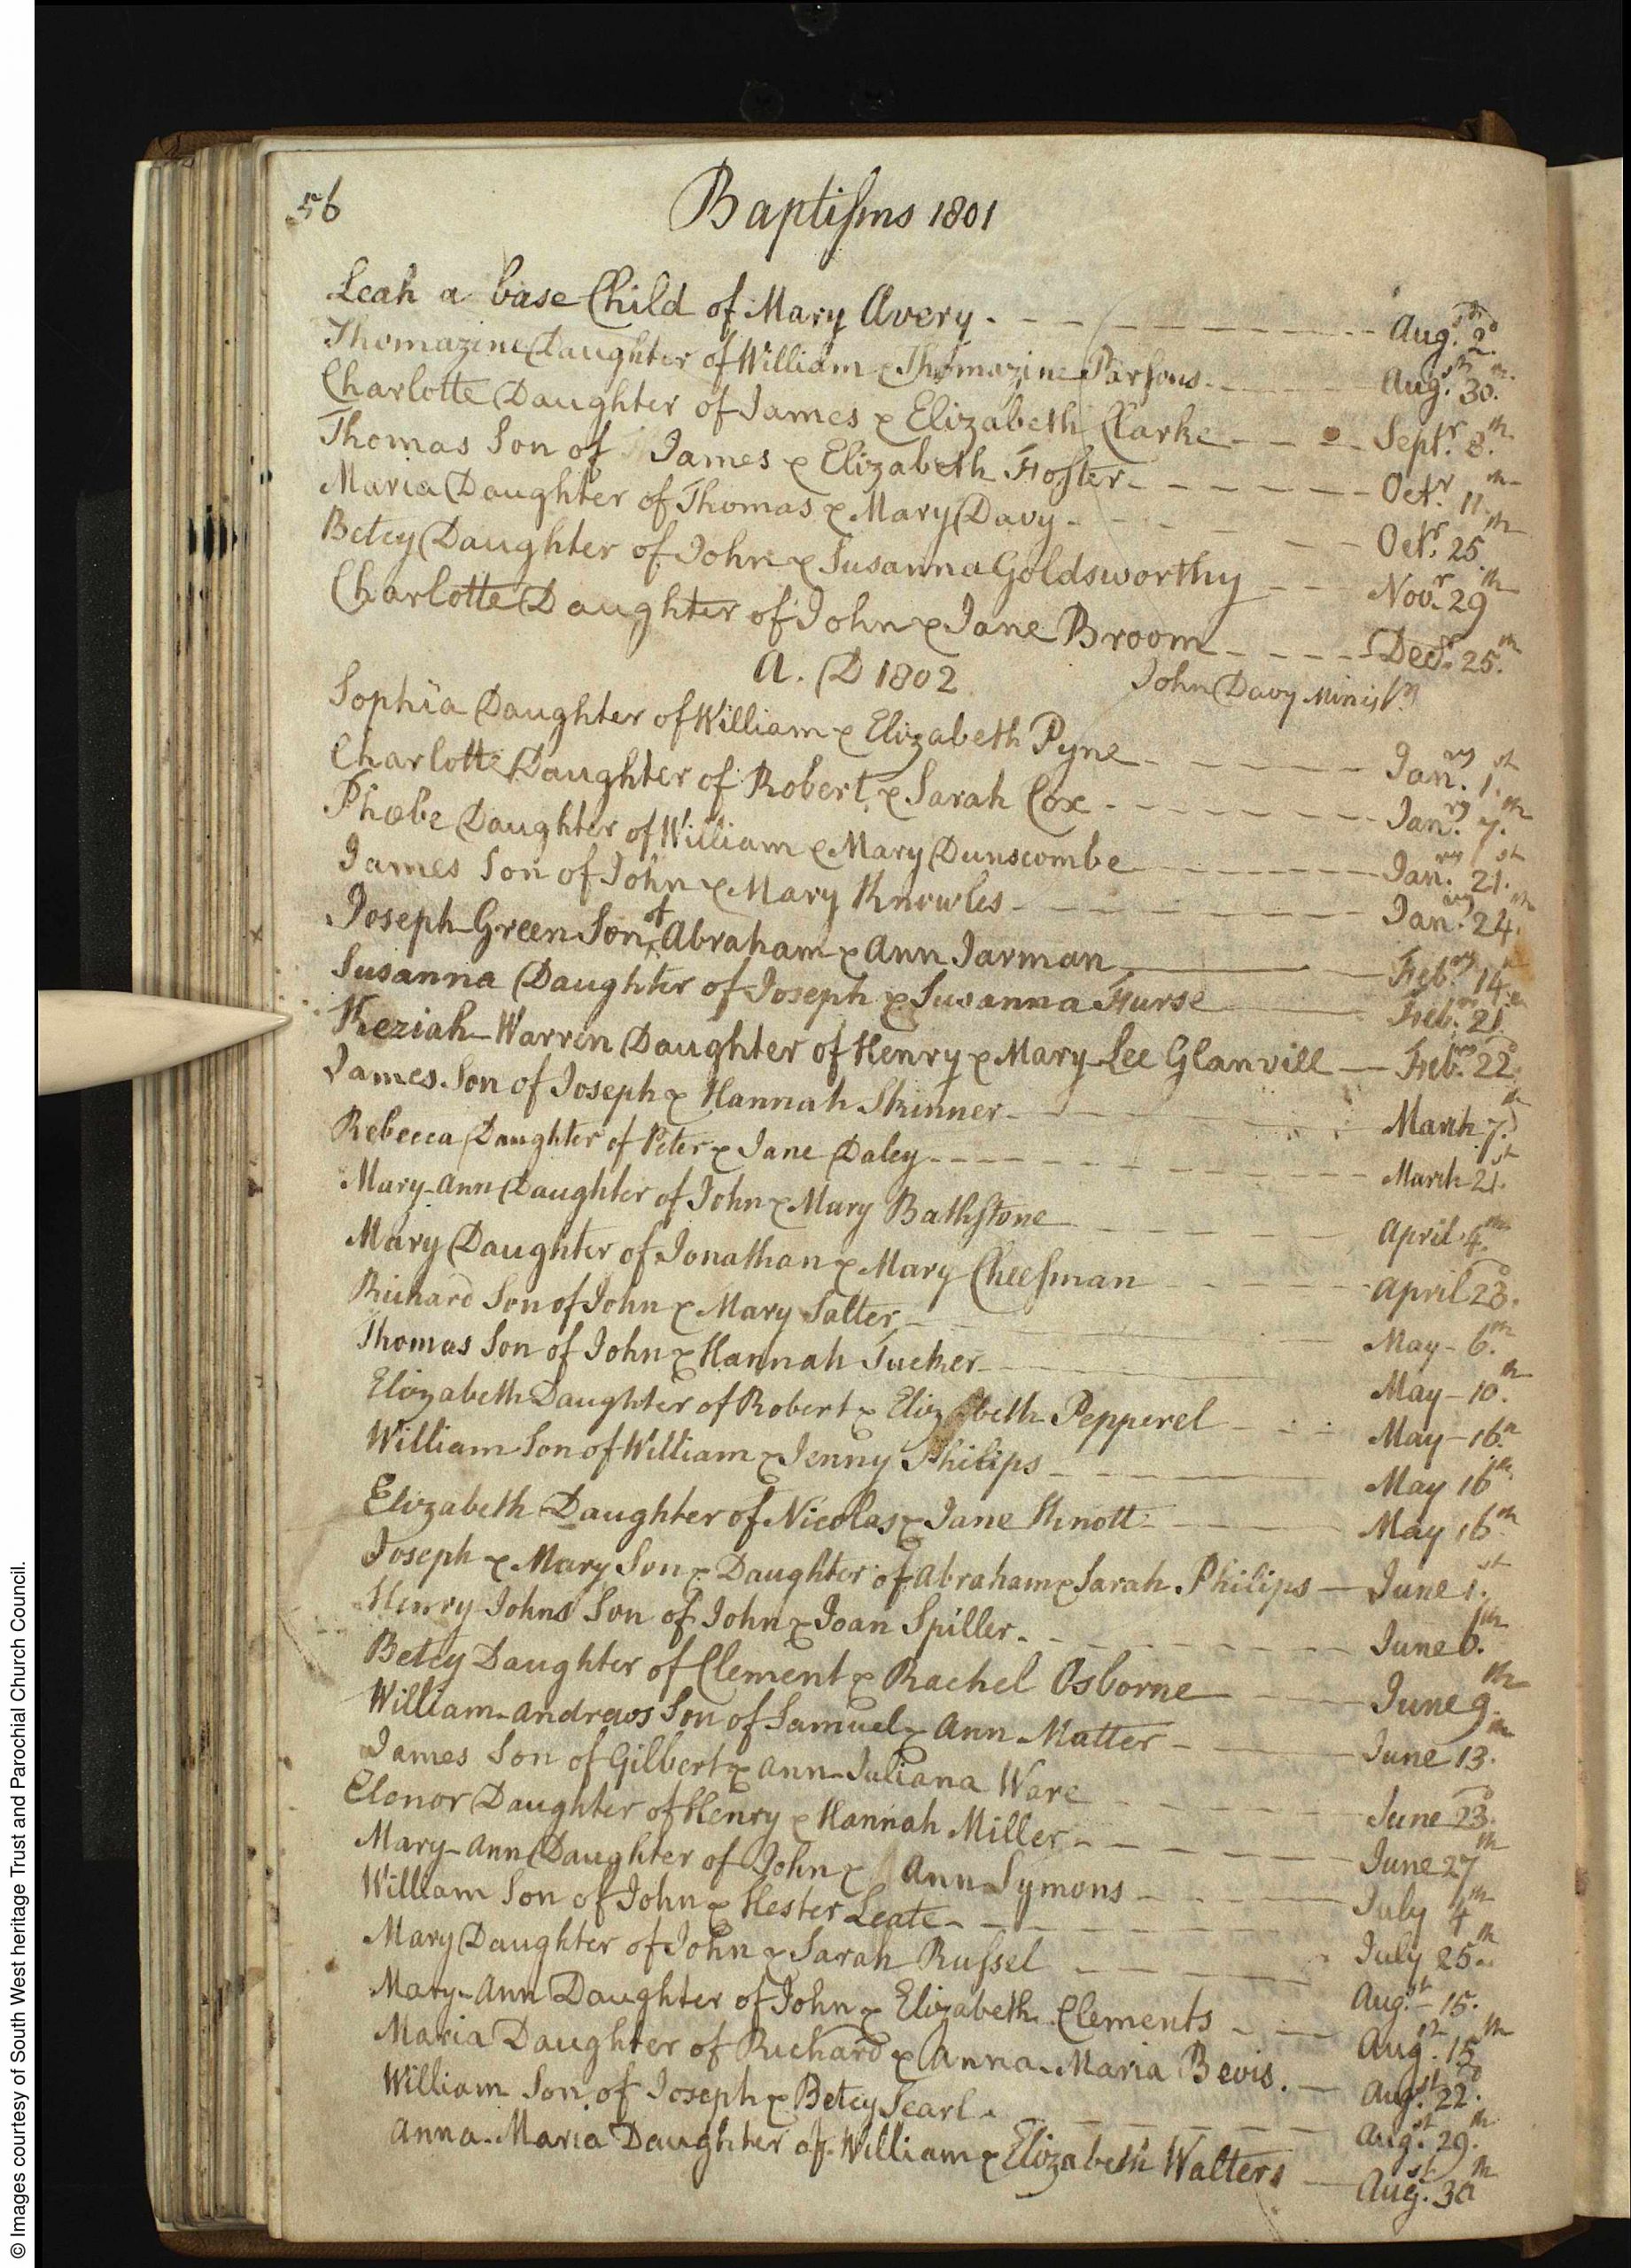 56
Baptiſms 1801
Leah a base Child of Mary Avery - - - - - Augst. 2d.
Thomazine Daughter of William & Thomazine Parſons - - - Augst. 30th.
Charlotte Daughter of James & Elizabeth Clarke - - - Septr. 8th.
Thomas Son of James & Elizabeth Foſter - - - - - Octr. 11th
Maria Daughter of Thomas & Mary Davy - - - - Octr. 25th
Betcy Daughter of John & Susanna Goldsworthy - - Novr. 29th
Charlotte Daughter of John & Jane Broom - - - - Decr. 25th.
A. D 1802 John Davy Miniſtr
Sophia Daughter of William & Elizabeth Pyne - - - - Janry. 1st.
Charlotte Daughter of Robert & Sarah Cox - - - - - Janry. 7th.
Phœbe Daughter of William & Mary Dunscombe - - - - Janry. 21st.
James Son of John & Mary Knowles - - - - - Janry. 24th.
Joseph-Green Son of Abraham & Ann Jarman - - - Febry. 14th
Susanna Daughter of Joseph & Susanna Hurse - - - Febry. 21st
Keziah-Warren Daughter of Henry & Mary-Lee Glanvill — Febry. 22d.
James Son of Joseph & Hannah Skinner - - - - March 7th.
Rebecca Daughter of Peter & Jane Daley - - - - - March 21st.
Mary-Ann Daughter of John & Mary Bathſtone - - - - April 4th.
Mary Daughter of Jonathan & Mary Cheeſman - - - - April 23d.
Richard Son of John & Mary Salter - - - - May - 6th.
Thomas Son of John & Hannah Tucker - - - - May - 10th.
Elizabeth Daughter of Robert & Elizabeth Pepperel - - - May - 16th
William Son of William & Jenny Philips - - - - May 16th
Elizabeth Daughter of Nicolas & Jane Knott - - - May 16th
Joseph & Mary Son & Daughter of Abraham & Sarah Philips — June 1st.
Henry Johns Son of John & Joan Spiller - - - - - June 6th.
Betcy Daughter of Clement & Rachel Osborne - - - June 9th.
William-Andrews Son of Samuel & Ann Matter - - - June 13th.
James Son of Gilbert & Ann-Juliana Ware - - - - June 23d.
Elonor Daughter of Henry & Hannah Miller - - - - June 27th
Mary-Ann Daughter of John & Ann Symons - - - - July 4th
William Son of John & Hester Leate - - - - - July 25th
Mary Daughter of John & Sarah Ruſsel - - - - Augst - 15th.
Mary-Ann Daughter of John & Elizabeth Clements - - - Augst. 15th
Maria Daughter of Richard & Anna-Maria Bevis. — Augst. 22d.
William Son of Joseph & Betcy Searl - - - - - Augst. 29th.
Anna-Maria Daughter of William & Elizabeth Walters — Augst. 30th
© Images courtesy of South West heritage Trust and Parochial Church Council.